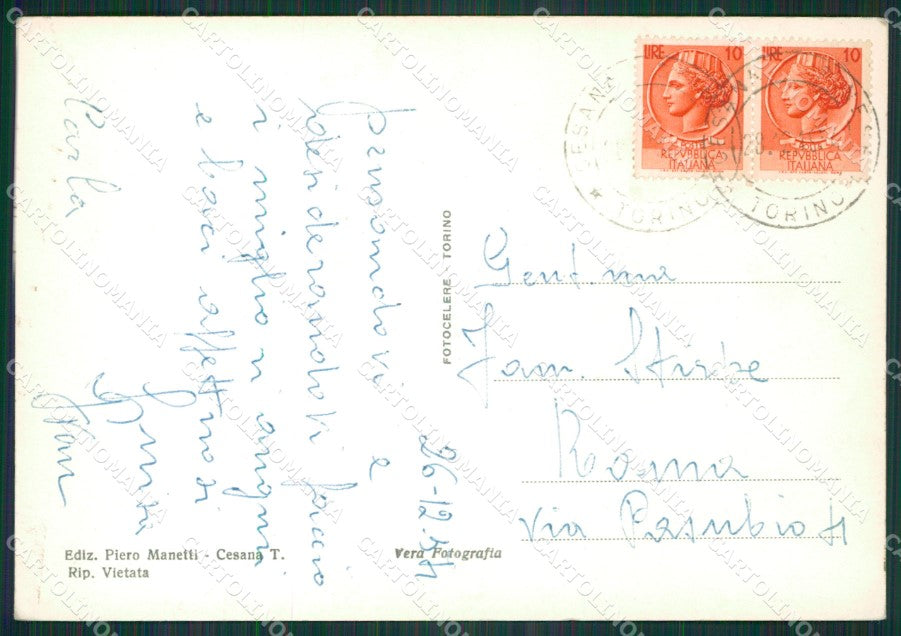 LIRE 10
POSTE
REPVBBLICA
ITALIANA
LIRE 10
POSTE
REPVBBLICA
ITALIANA
CESANA
TORINO
TORINO
26-12-
pensandovi e
desiderandovi faccio
i migliori auguri
e baci affettuosi
Carla
FOTOCELERE TORINO
Gent.ma
Fam.
Roma
Via Pasubio 4
Ediz. Piero Manetti - Cesana T.
Rip. Vietata
Vera Fotografia
CARTOLINOMANIA